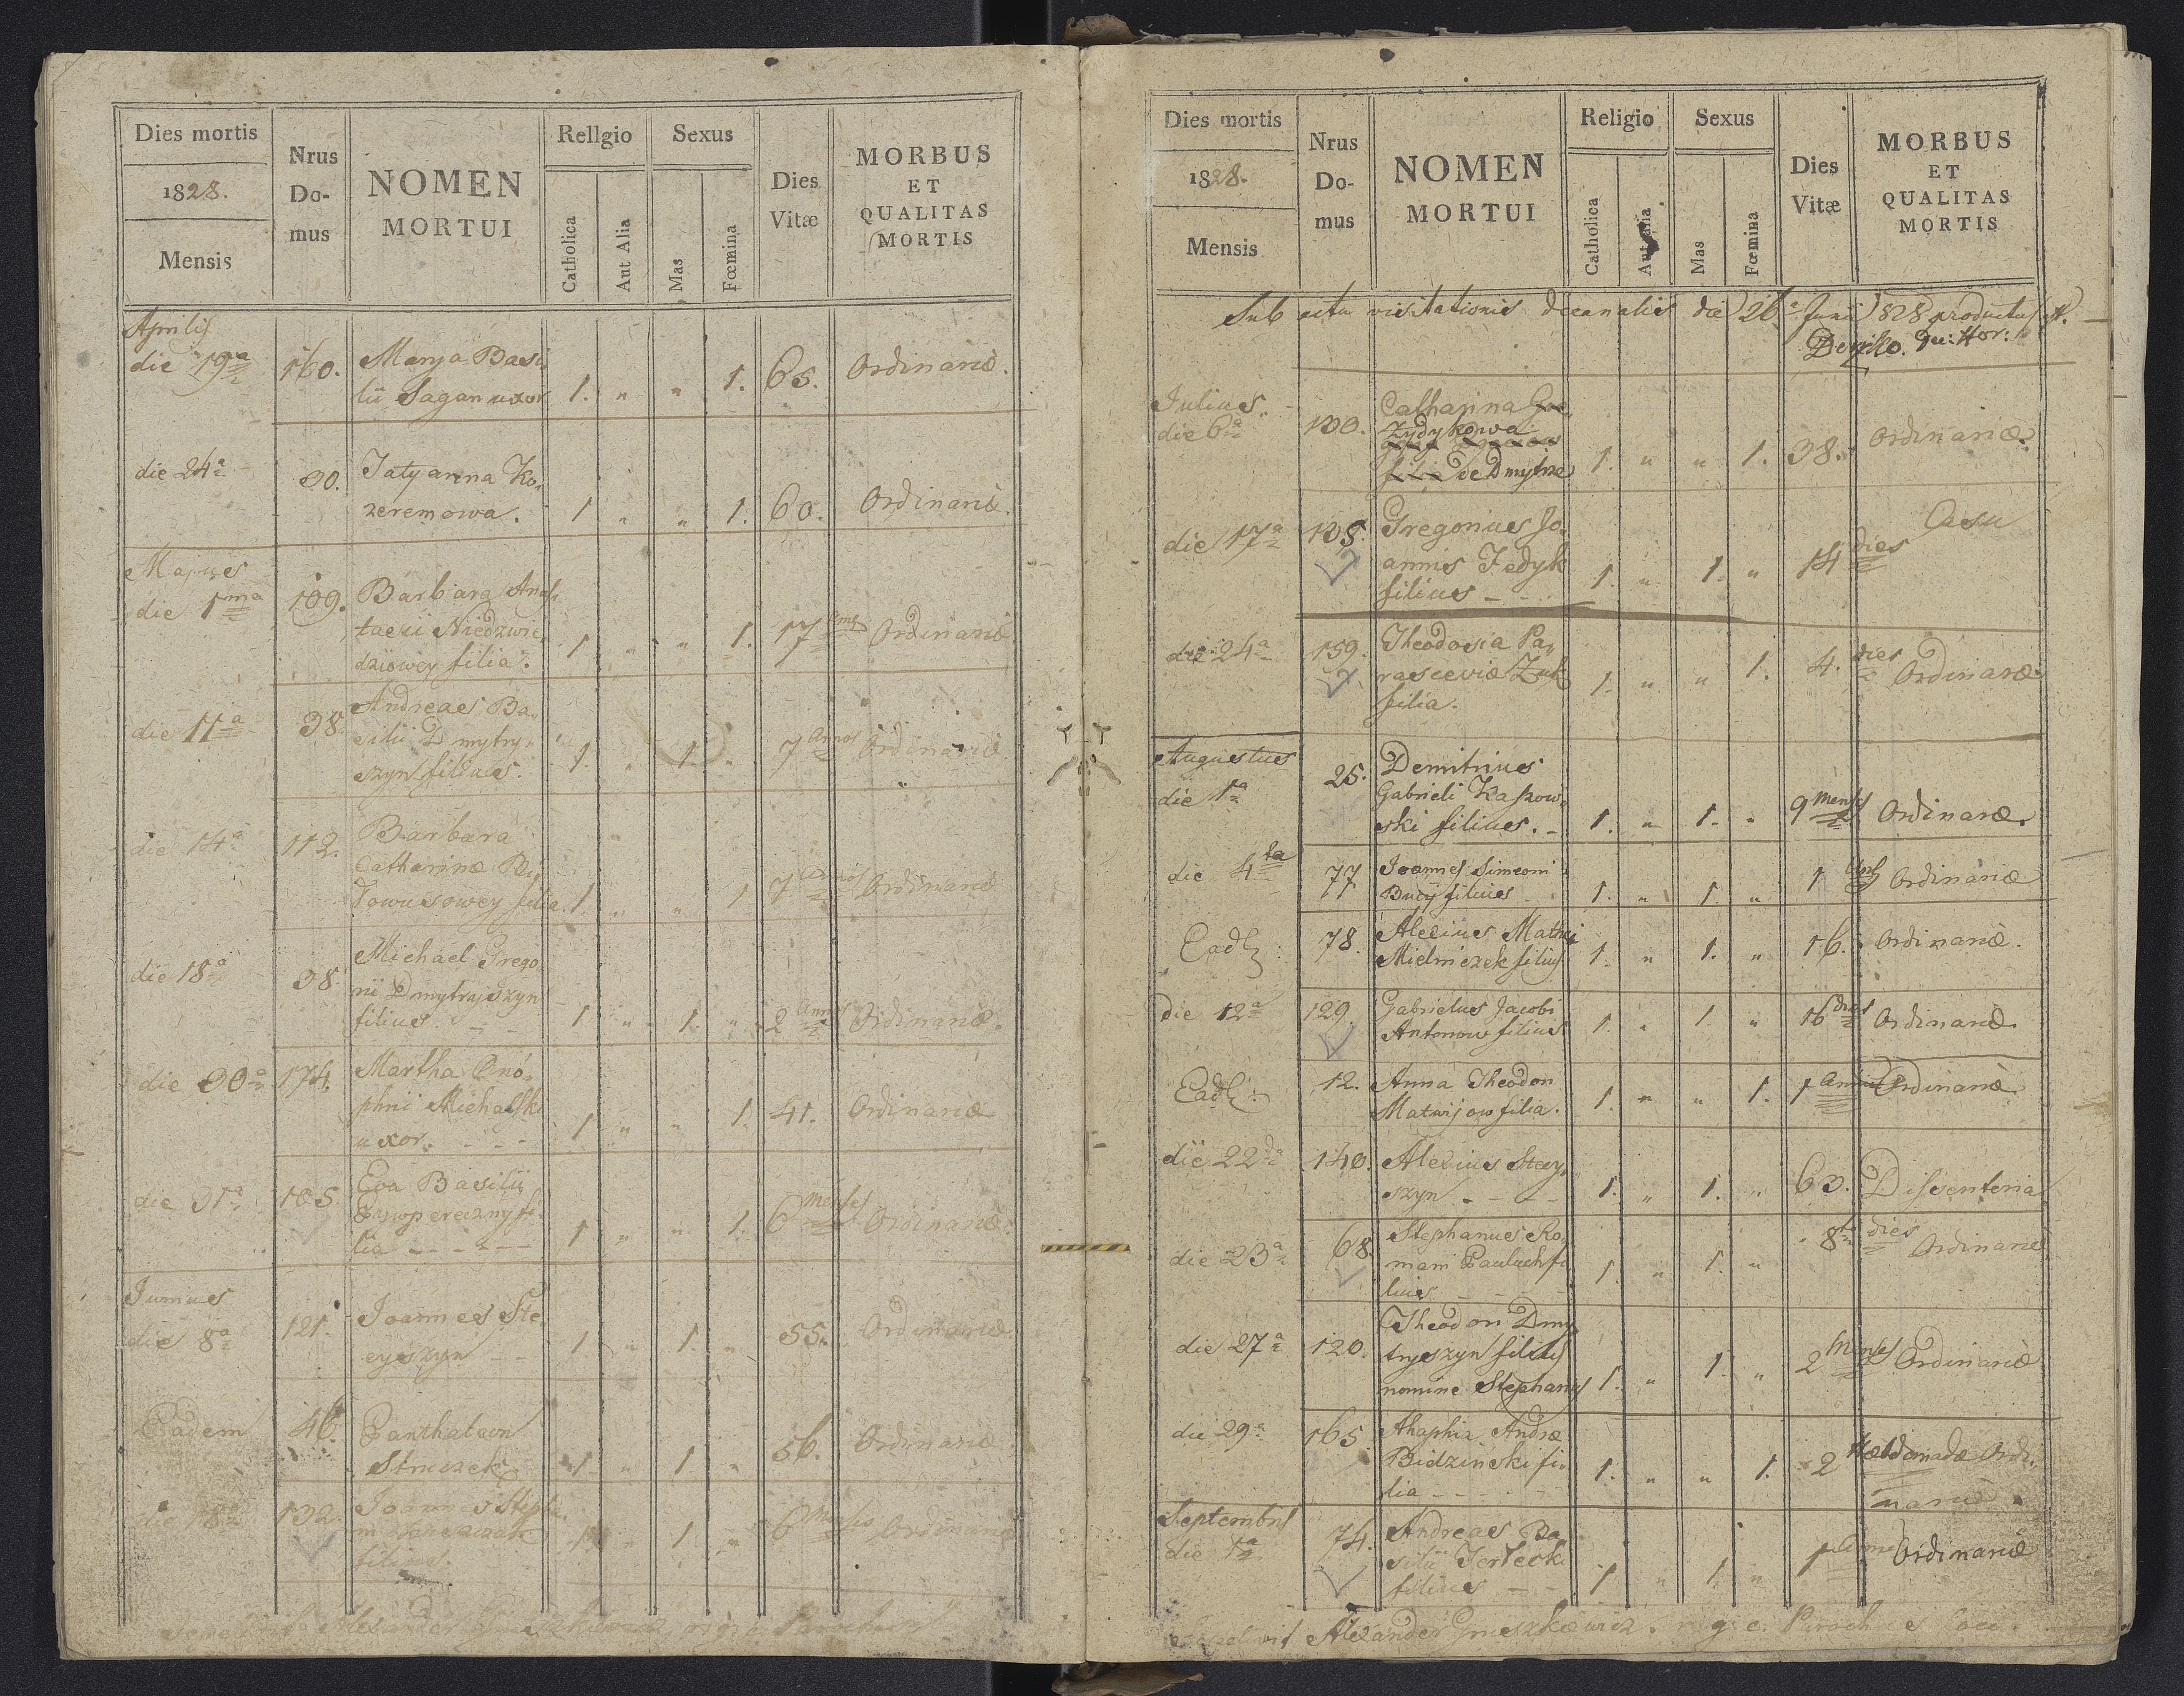 Dies mortis
1828.
Mensis
Nrus
Do-
mus
NOMEN
MORTUI
Rellgio
Catholica
Aut Alia
Sexus
Mas
Fœmina
Dies
Vitæ
MORBUS
ET
QUALITAS
MORTIS
Aprilis
die 19a 160. Marya Basi
lii Sagan uxor 1. " " 1. 65. Ordinariè.
die 24a 30. Tatyanna Ko,
zeremowa. 1 " " 1. 60. Ordinariè.
Majus
die 1ma 109. Barbara Anas
tacii Niedzwie
dziowey filia. 1 " " 1. 17 Ordinariè
die 11a 38 Andreas Ba,
silii Dmytry,
szyn filius. 1. " 1. " 7 Annos Ordinariè
die 14a 112. Barbara
Catharinæ
filia. 1. " " 1 7 annos Ordinariè
die 18a 38. Michael Grego
rii Dmytryszyn
filius - - 1 " 1. " 2 Annos Ordinariè.
die 30a 174. Martha Ono,
phrii Michalski
uxor. - - - 1 " " 1. 41. Ordinariè
die 31a 105 Eva Basilii
fi
lia - - - - 1 " " 1. 6 menses Ordinariè.
Junius
die 8a 121. Joannes Ste
cyszyn - - 1 " 1. " 55. Ordinariè.
Eadem 46. Panthaleon
Struczek 1 " 1 " 56. Ordinariè
die 18a 132. Joannes Steph
filius. 1 " 1 " 6 Ordinariè
Alexander Paroch
Dies mortis
1828.
Mensis
Nrus
Do-
mus
NOMEN
MORTUI
Religio
Catholica
Aut Alia
Sexus
Mas
Fœmina
Dies
Vitæ
MORBUS
ET
QUALITAS
MORTIS
Sub actu visitationis decanalis die 26a Junii 828 productus est.
Julius
die 6a 130. Catharina
Zydykowa
filia de Dmytrze 1. " " 1. 38. Ordinariè.
die 17a 105. Gregorius Jo,
annis Fedyk
filius - - 1. " 1. " 14 dies Casu
die 24a 159. Theodosia Pa,
rasceviæ Zuk
filia. 1. " " 1. 4. dies Ordinariè.
Augustus
die 1a 25. Demitrius
Gabrieli Kaszow,
ski filius. - 1. " 1. " 9 menses Ordinariè.
die 4ta 77 Joannes Simeoni
filius 1. " 1. " 1 Ordinariè
Ead: 78. Alexius Mathei
Mielniczek filius 1. " 1. " 16. Ordinariè.
Die 12a 129 Gabrielus Jacobi
Antonow filius 1. " 1. " 16 dies Ordinariè.
Ead: 12. Anna Theodori
Matwijow filia. 1. " " 1. 1 Ordinariè
die 22da 140. Alexius Stecy,
szyn - - - - 1. " 1. " 63. Dissenteria
die 23a 68. Stephanus Ro,
mani Pauluch fi
lius 1 " 1. " 8 dies Ordinariè
die 27a 120. Theodori Dmy
tryszyn filius
nomine Stephanus 1. " 1. " 2 menses Ordinariè
die 29a 165 Ahaphia Andræ
Bidzinski fi,
lia - - - 1. " " 1. 2 Hebdomadæ Ordi,
nariè.
Septembris
die 1a 74. Andreas Ba
silii
filius - - 1 " 1. " 1 Ordinariè
Alexander Gruszkiewicz. r. g. c. Parochus loci.